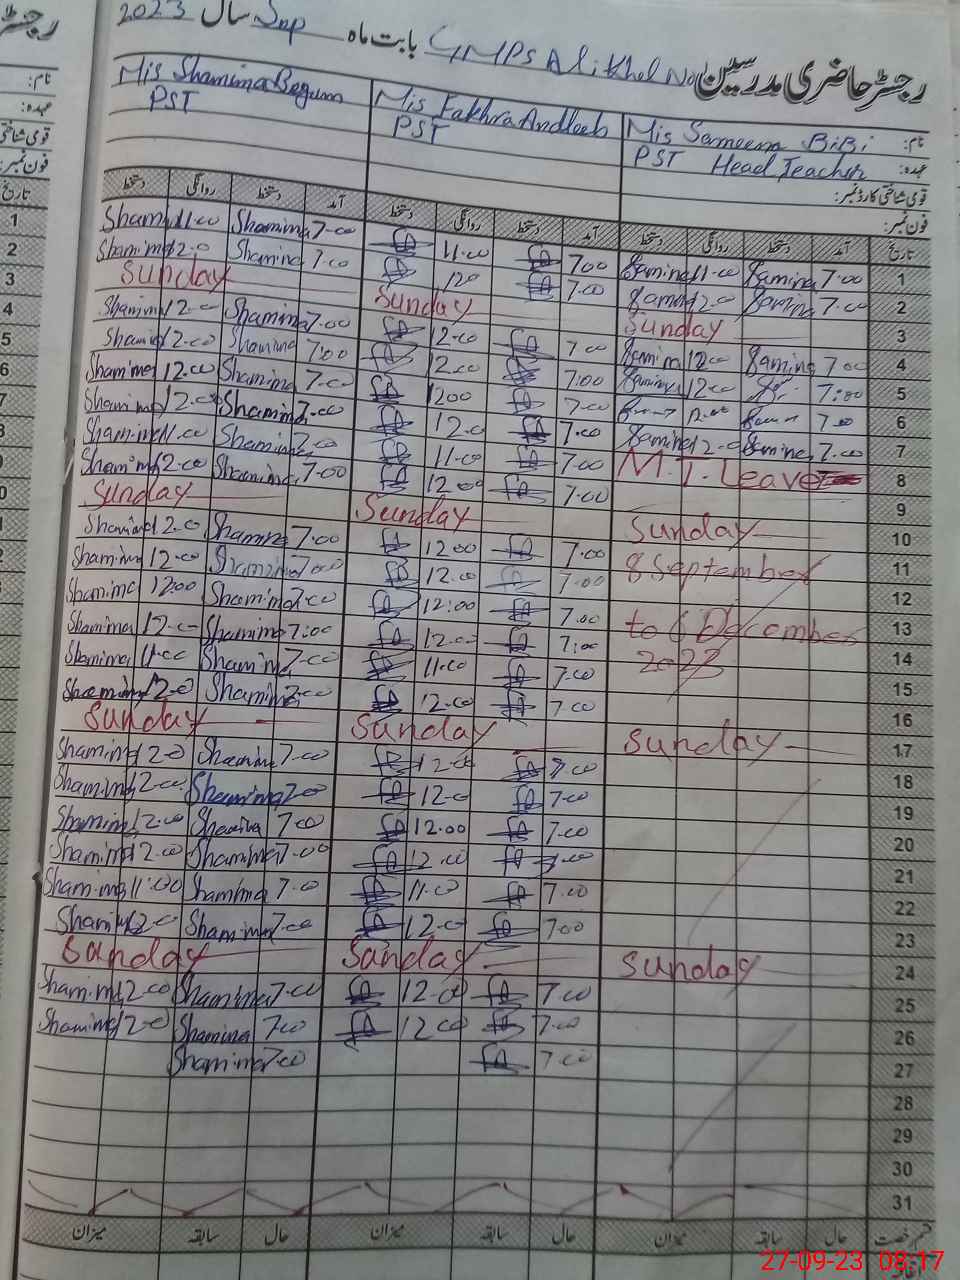 رجسٹر حاضری مدرسین GMPS Alikhel No1 بابت ماہ Sep سال 2023
نام: Mis Sameena BiBi Mis Fakhra Andleeb Mis Shamima Begum
عہدہ: PST Head Teacher PST PST
قومی شناختی کارڈ نمبر:
فون نمبر:
تاریخ آمد دستخط روانگی دستخط آمد دستخط روانگی دستخط آمد دستخط روانگی دستخط
1 7:00 Samina 11-00 700 11-00 7-00 Shamima 11-00 Shamima
2 7-00 Samina 12-00 7-00 120 7-00 Shamima 12-0 Shamima
3 Sunday Sunday Sunday
4 7 00 Samina 12-00 7 00 12-00 7-00 Shamima 12-00 Shamima
5 7:00 12-00 Samina 7:00 12-00 7:00 Shamima 12-00 Shamima
6 7-00 12-00 7-00 1200 7-00 Shamima 12-00 Shamima
7 7-00 Samina 12-0 Samina 7-00 12-0 7-00 Shamima 12-00 Shamima
8 M.T. Leave 7-00 11-00 7-00 Shamima 11-00 Shamima
9 7-00 12 00 7-00 Shamima 12-00 Shamima
10 Sunday Sunday Sunday
11 8 September 7-00 12 00 7-00 Shamima 12-0 Shamima
12 7-00 12-00 700 Shamima 12-00 Shamima
13 to 6 December 7-00 12:00 7-00 Shamima 12:00 Shamima
14 2023 7:00 12-00 7:00 Shamima 12-0 Shamima
15 7-00 11-00 7-00 Shamima 11-00 Shamima
16 7-00 12-00 7-00 Shamima 12-0 Shamima
17 Sunday Sunday Sunday
18 7-00 12-00 7-00 Shamima 12-0 Shamima
19 7-00 12-0 7-00 Shamima 12-00 Shamima
20 7-00 12-00 7-00 Shamima 12-00 Shamima
21 7-00 12-00 7-00 Shamima 12-00 Shamima
22 7-00 11-00 7-0 Shamima 11:00 Shamima
23 700 12-0 7-00 Shamima 12-0 Shamima
24 Sunday Sanday Sanday
25 7-00 12-00 7-00 Shamima 12-00 Shamima
26 7-00 12 00 7-00 Shamima 12-0 Shamima
27 7-00 7-00 Shamima
28
29
30
31
قسم رخصت حال سابقہ میزان حال سابقہ میزان حال سابقہ میزان
27-09-23 08:17